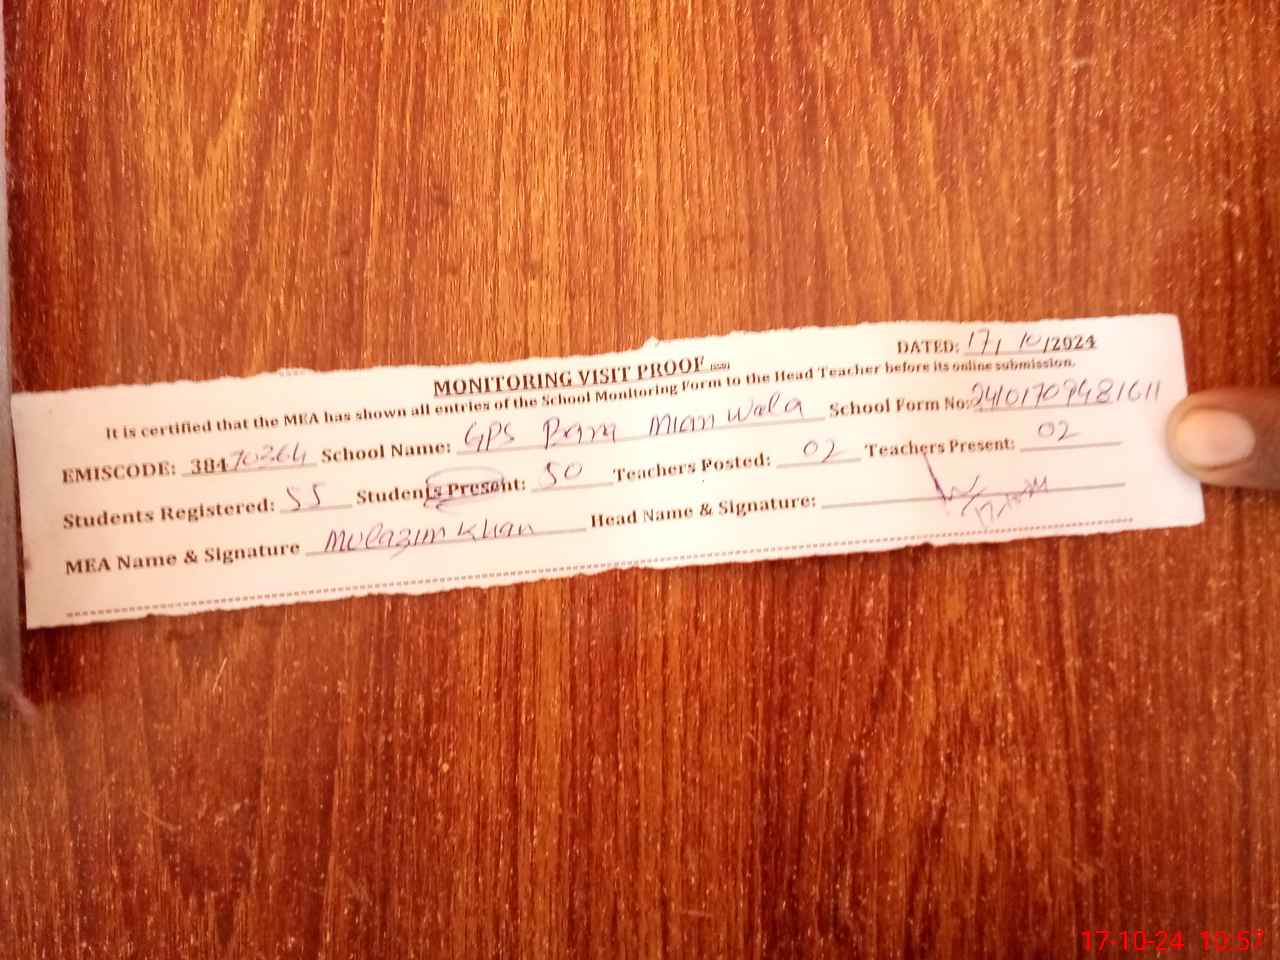 MONITORING VISIT PROOF
DATED: 17/10/2024
It is certified that the MEA has shown all entries of the School Monitoring Form to the Head Teacher before its online submission.
EMISCODE: 38470264 School Name: GPS Mianwala School Form No:
Students Registered: 55 Students Present: 50 Teachers Posted: 02 Teachers Present: 02
MEA Name & Signature Mulazim Khan Head Name & Signature:
17-10-24 10:57